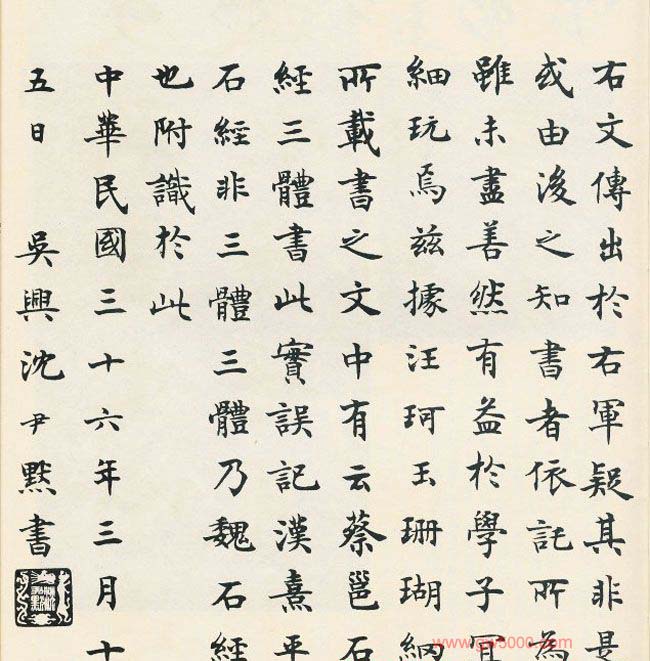 右文傳出於右軍疑其非是
或由後之知書者依託所為
雖未盡善然有益於學子宜
細玩焉茲據汪珂玉珊瑚網
所載書之文中有云蔡邕石
經三體書此實誤記漢熹平
石經非三體三體乃魏石經
也附識於此
中華民國三十六年三月十
五日 吳興沈尹默書
www.gw5000.com